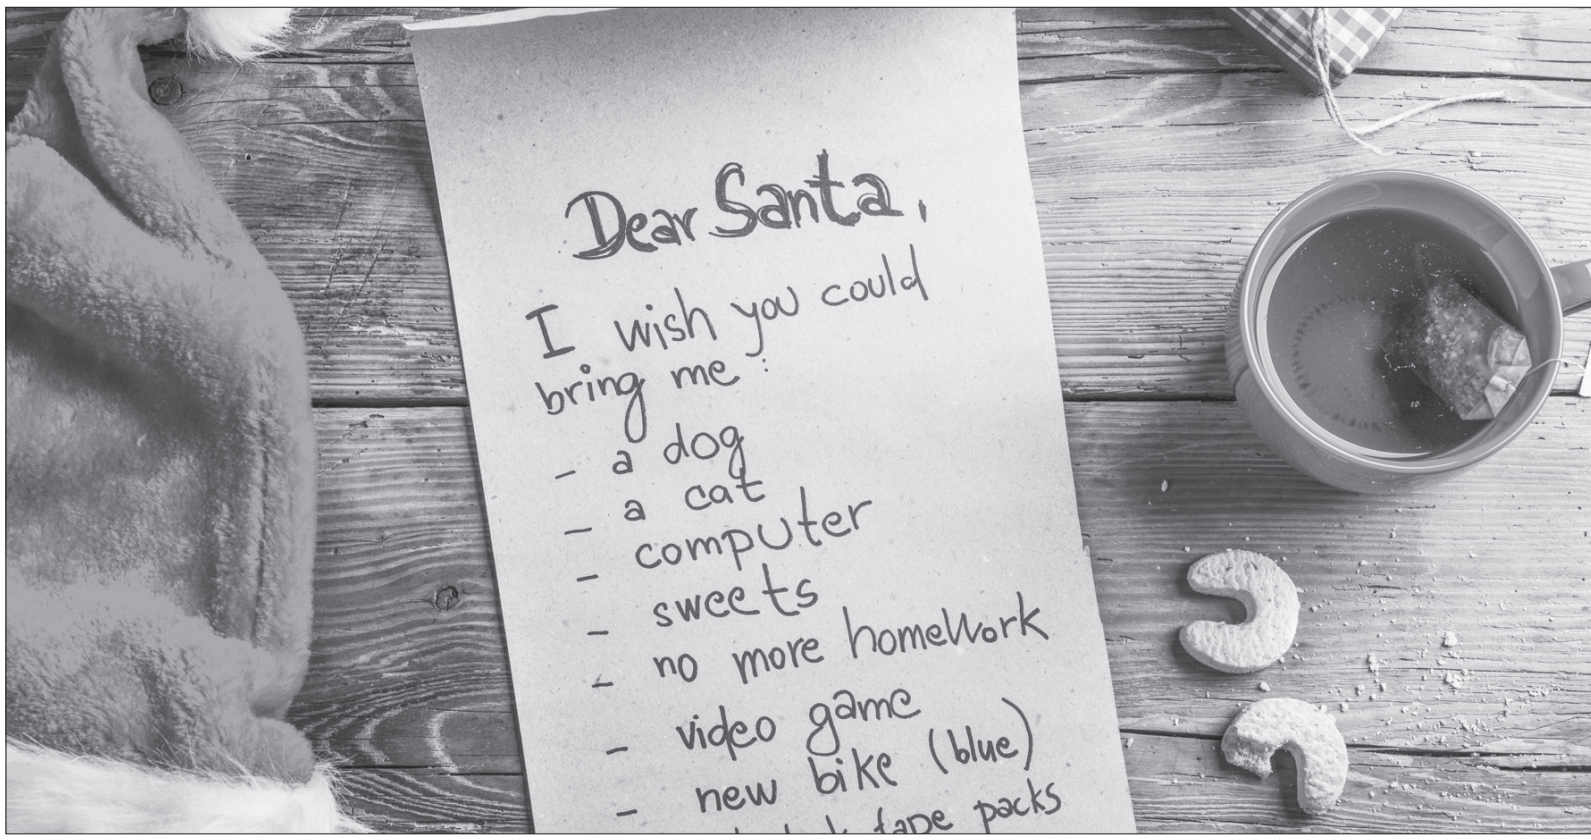 Dear Santa,
I wish you could
bring me :
- a dog
- a cat
- computer
- sweets
- no more homework
- video game
- new bike (blue)
tape packs